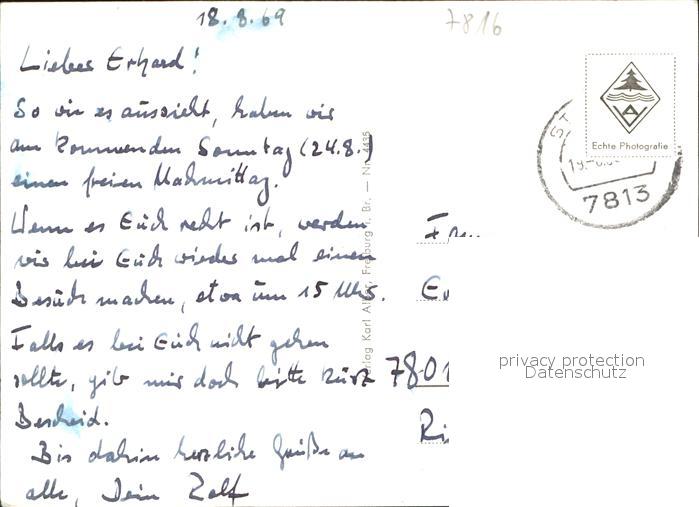 18.8.69
7816
Lieber Erhard!
So wie es aussieht, haben wir
am kommenden Sonntag (24.8.)
einen freien Nachmittag.
Wenn es Euch recht ist, werden
wir bei Euch wieder mal einen
Besuch machen, etwa um 15 Uhr.
Falls es bei Euch nicht gehen
sollte, gib mir doch bitte kurz
Bescheid.
Bis dahin herzliche Grüße an
alle, Dein Rolf
Echte Photografie
7813
Verlag Karl Freiburg i. Br. — Nr. 4435
7801
privacy protection
Datenschutz